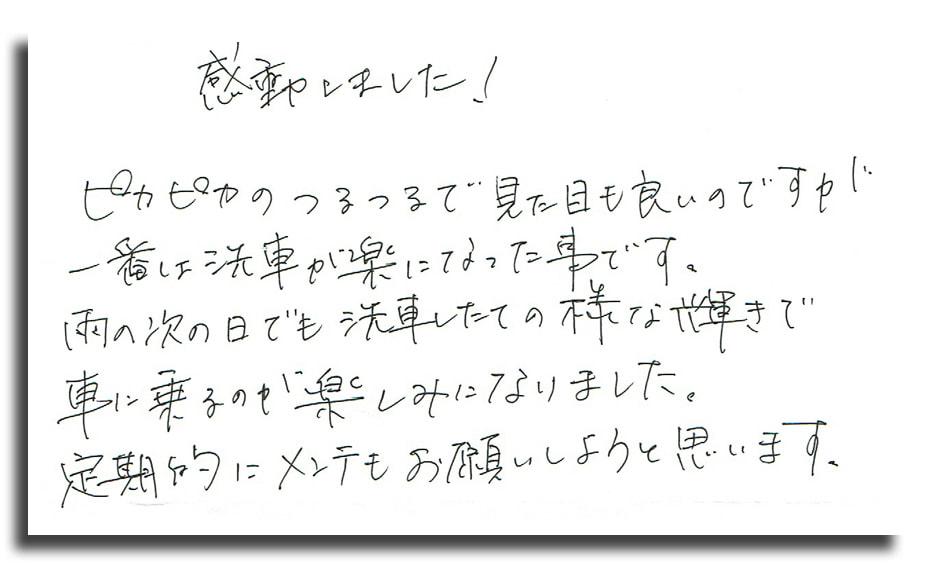 感動しました!
ピカピカのつるつるで見た目も良いのですが
一番は洗車が楽になった事です。
雨の次の日でも洗車したての様な輝きで
車に乗るのが楽しみになりました。
定期的にメンテもお願いしようと思います。